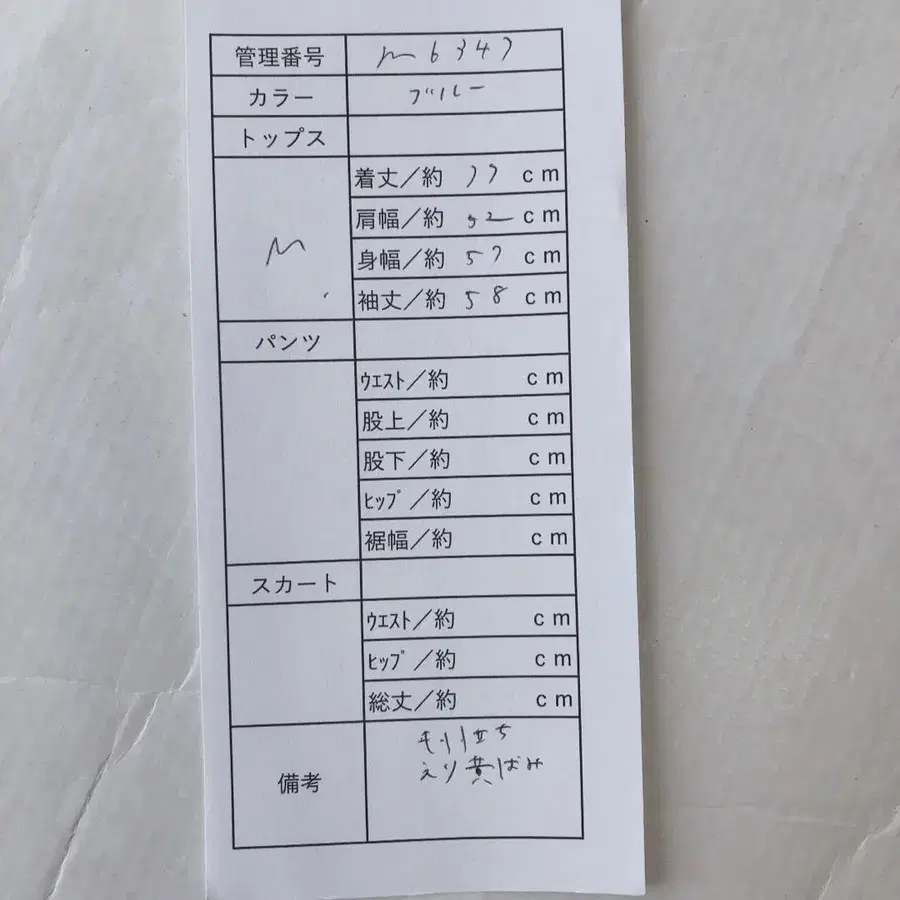 管理番号 m6347
カラー ブルー
トップス
M
着丈/約 77 cm
肩幅/約 52 cm
身幅/約 57 cm
袖丈/約 58 cm
パンツ
ウエスト/約 cm
股上/約 cm
股下/約 cm
ヒップ/約 cm
裾幅/約 cm
スカート
ウエスト/約 cm
ヒップ/約 cm
総丈/約 cm
備考
毛羽立ち
えり黄ばみ